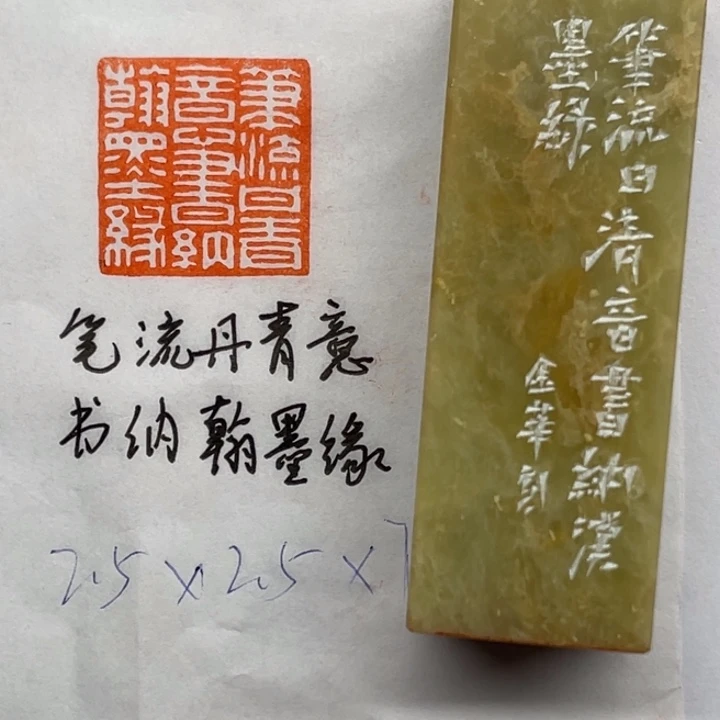 筆流丹青
意書納
翰墨緣
笔流丹青意
书纳翰墨缘
2.5×2.5×
筆流白清音書納漢
墨緑
金華刻